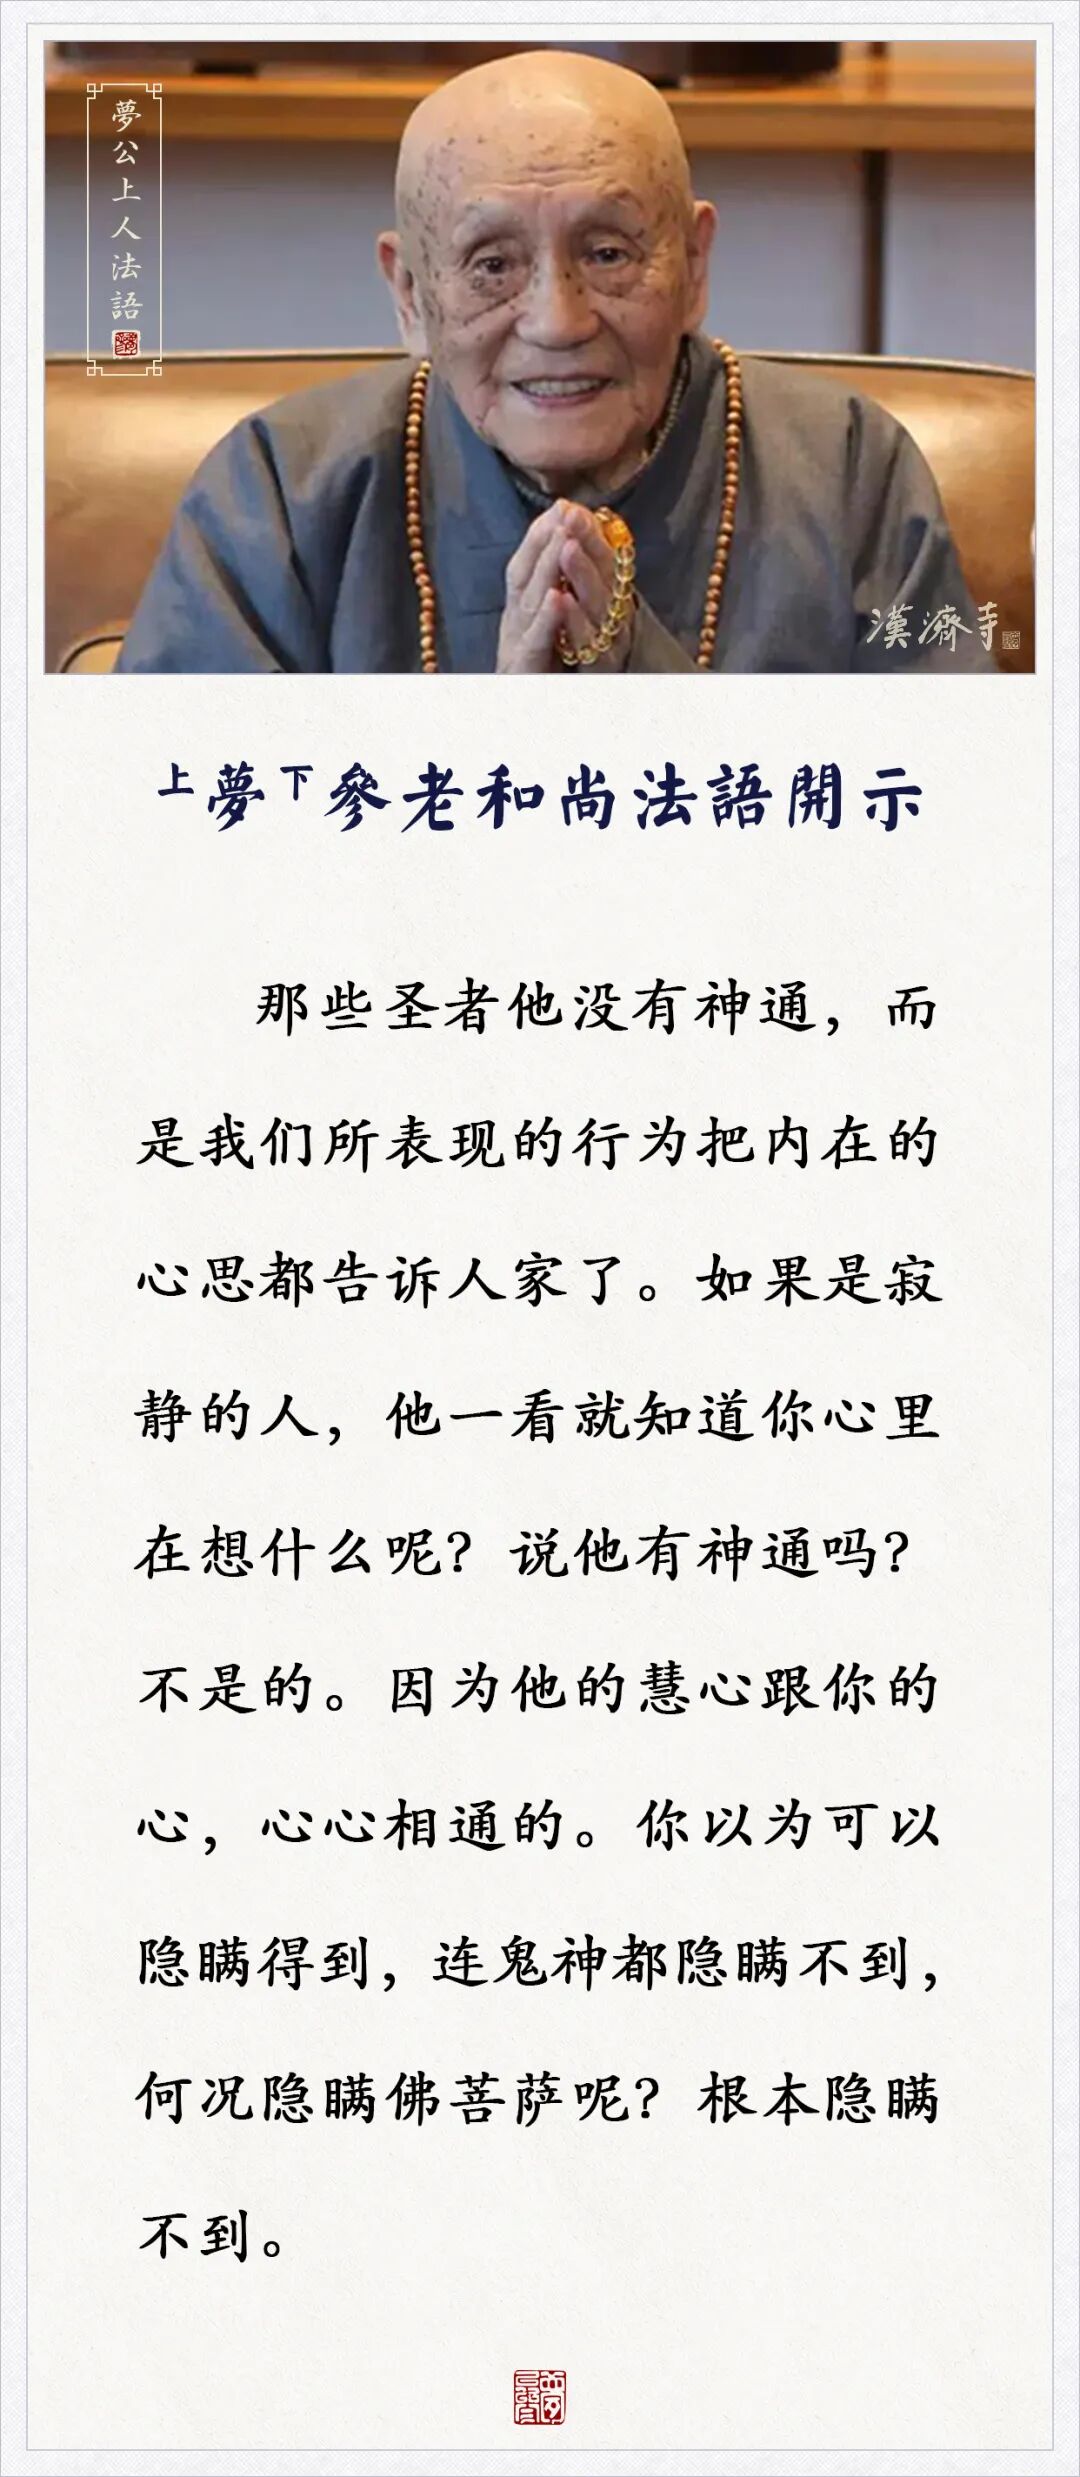 夢公上人法語
漢濟寺
上夢下參老和尚法語開示
那些圣者他没有神通，而
是我们所表现的行为把内在的
心思都告诉人家了。如果是寂
静的人，他一看就知道你心里
在想什么呢？说他有神通吗？
不是的。因为他的慧心跟你的
心，心心相通的。你以为可以
隐瞒得到，连鬼神都隐瞒不到，
何况隐瞒佛菩萨呢？根本隐瞒
不到。